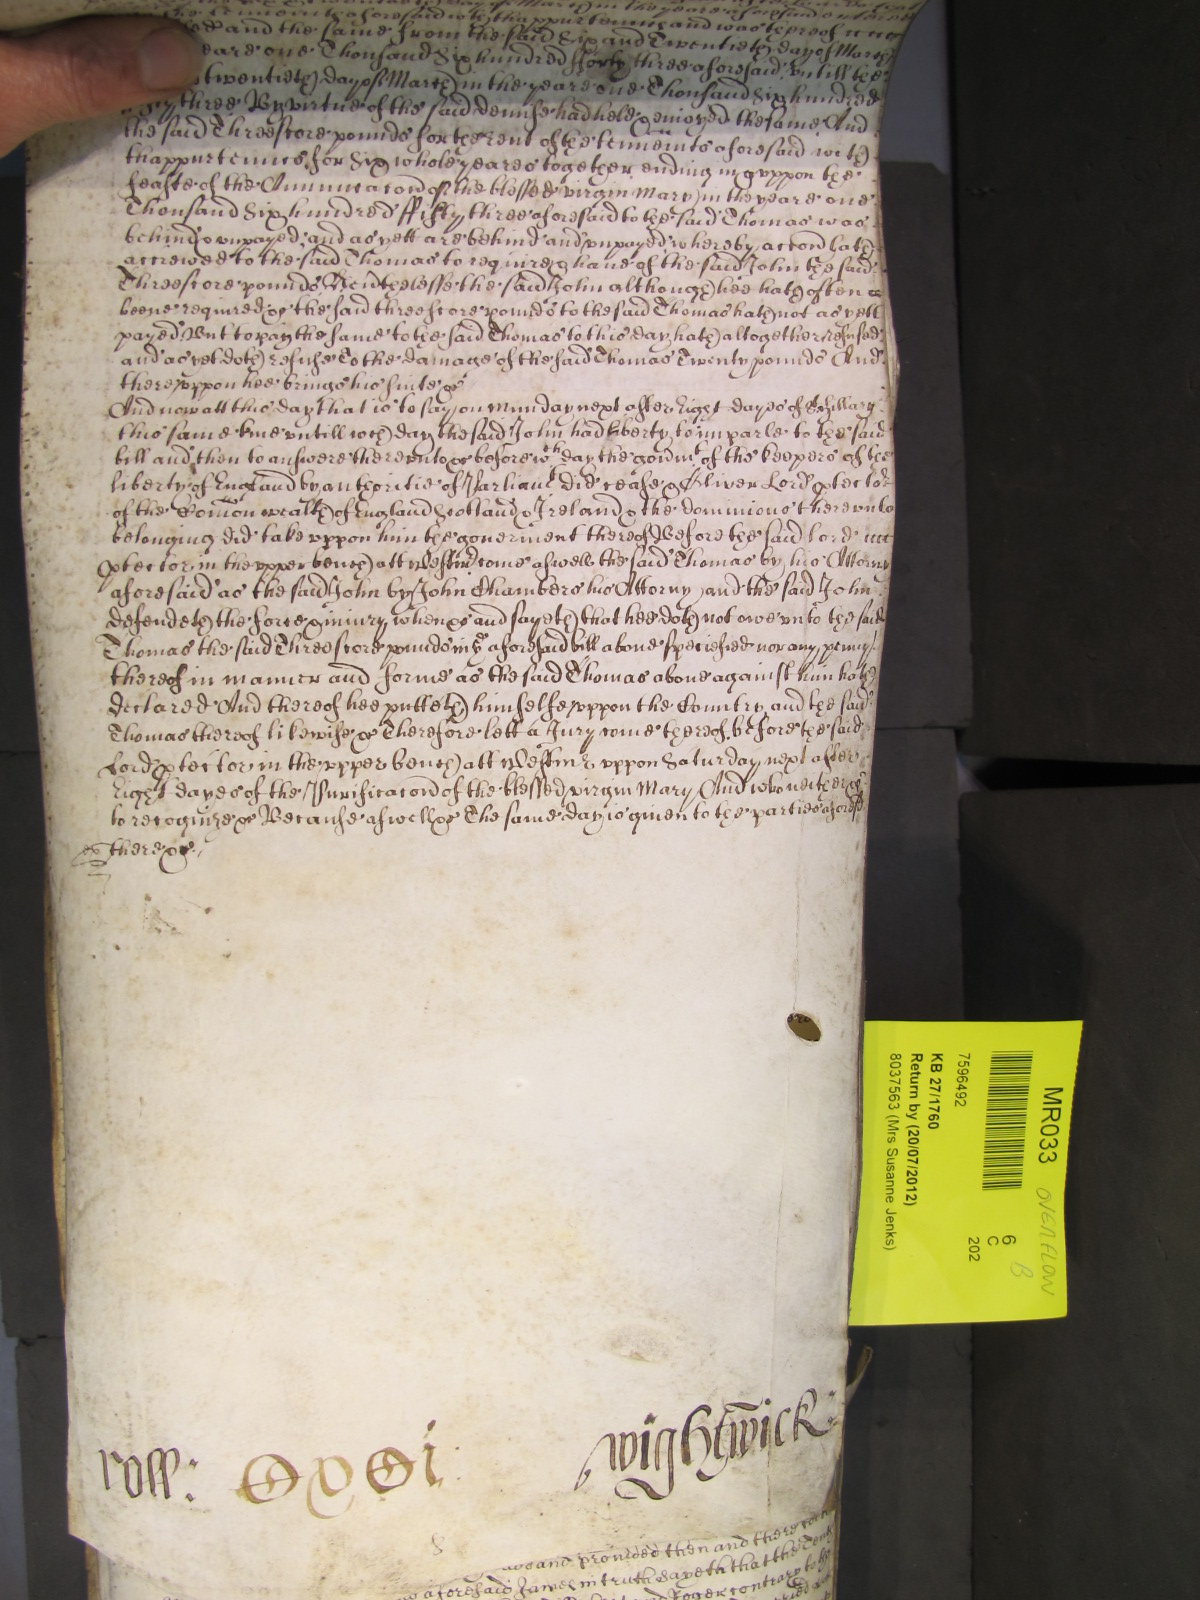 and the same from the said Six and Twentieth day of March
yeare one Thousand Six hundred fforty three aforesaid untill the
twentieth day of March in the yeare one Thousand Six hundred
three By virtue of the said demise had held & enioyed the same And
the said Threescore pounds for the rent of the tenements aforesaid with
thappurtennces for Six whole yeares together ending in & uppon the
feaste of the Annunciacon of the blessed virgin Mary in the yeare one
Thousand Six hundred ffifty three aforesaid to the said Thomas was
behind & unpayed, and as yett are behind and unpayed whereby accon hath
accrewed to the said Thomas to require & have of the said John the said
Threescore pounds Neverthelesse the said John although hee hath often
beene required &c the said threescore pounds to the said Thomas hath not as yett
payed, But to pay the same to the said Thomas to this day hath altogether refused
and as yet doth refuse To the damage of the said Thomas Twenty pounds And
thereuppon hee brings his suite &c
And now att this day that is to say on Munday next after Eight dayes of St Hillary
this same tme untill wch day the said John had liberty to imparle to the said
bill and then to answere thereunto &c before wch day the govermt of the keepers of the
liberty of England by authoritie of Parliamt did cease & Oliver Lord ptector
of the Comon wealth of England Scotland & Ireland & the dominions thereunto
belonging did take uppon him the goverment thereof Before the said lord
ptector in the upper bench att Westmr come aswell the said Thomas by his Attorny
aforesaid as the said John by John Chambers his Attorny and the said John
defendeth the force & iniury when &c and sayeth that hee doth not owe unto the said
Thomas the said Threescore pounds in ye aforesaid bill above specified nor any penny
thereof in manner and forme as the said Thomas above against him hath
declared And thereof hee putteth himselfe uppon the Country and the said
Thomas thereof likewise &c Therefore lett a Jury come thereof before the said
Lord ptector in the upper bench att Westmr uppon Saturday next after
Eight dayes of the Purificacon of the blessed virgin Mary And who neither &c
to recognize &c Because aswell &c The same day is given to the parties aforesd
there &c
Roll:
Wightwick
and provided then and there
aforesaid James in truth sayeth that the
and Roger contrary to the
MR033
OVERFLOW
6
B
C
202
7596492
KB 27/1760
Return by (20/07/2012)
8037563 (Mrs Susanne Jenks)